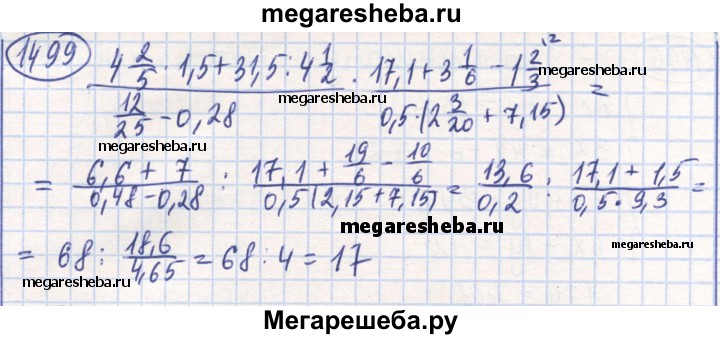 megaresheba.ru
1499
4 2/5 · 1,5 + 31,5 : 4 1/2 / 12/25 - 0,28 : 17,1 + 3 1/6 - 1 2/3 \2 / 0,5 · (2 3/20 + 7,15) =
megaresheba.ru
megaresheba.ru
= 6,6 + 7 / 0,48 - 0,28 : 17,1 + 19/6 - 10/6 / 0,5 (2,15 + 7,15) = 13,6 / 0,2 : 17,1 + 1,5 / 0,5 · 9,3 =
megaresheba.ru
= 68 : 18,6 / 4,65 = 68 : 4 = 17
megaresheba.ru
megaresheba.ru
Мегарешеба.ру